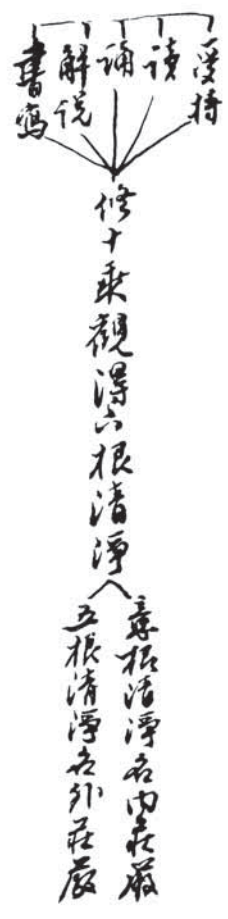 受持
读
诵
解说
書寫
修十乘觀得六根清淨
意根清淨名内莊嚴
五根清淨名外莊嚴